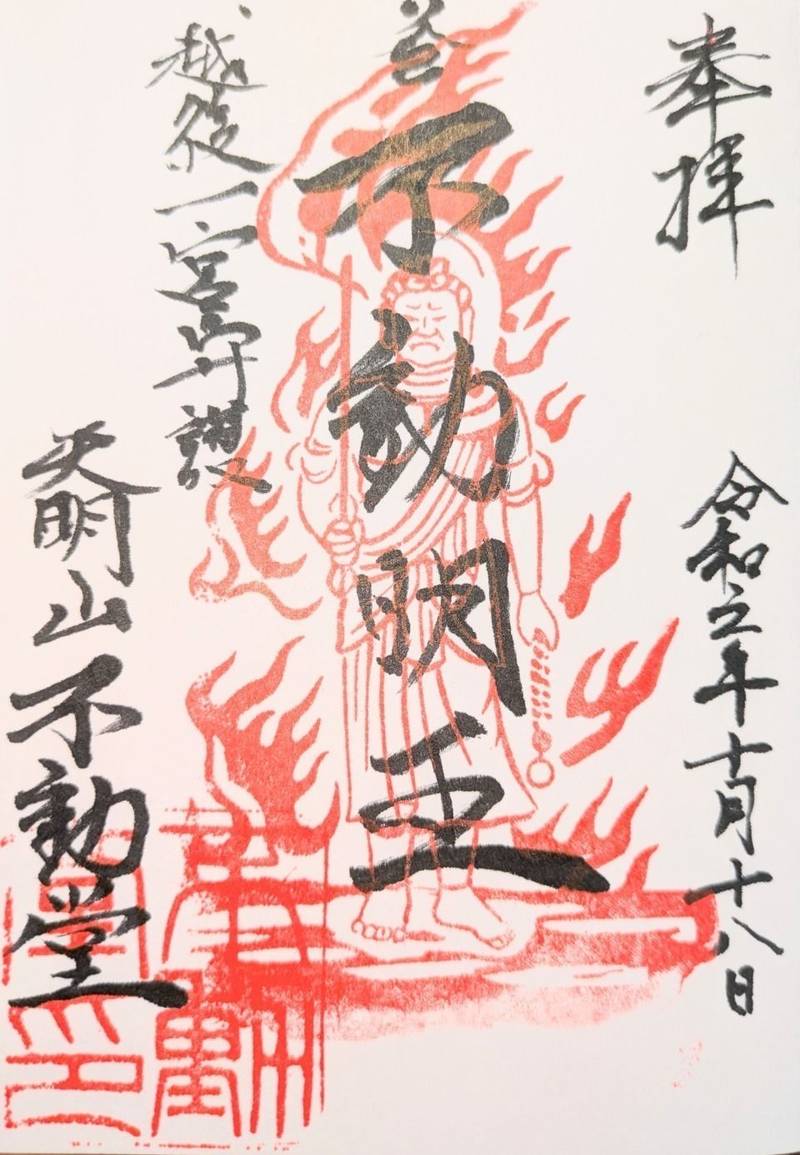 奉拝
令和五年十月十八日
不動明王
越後一宮守護
天明山不動堂